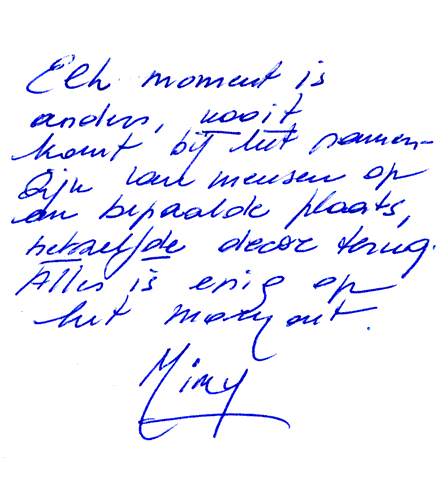 Elk moment is
anders, nooit
komt bij het samen-
zijn van mensen op
een bepaalde plaats,
hetzelfde decor terug.
Alles is enig op
het moment.
Miny